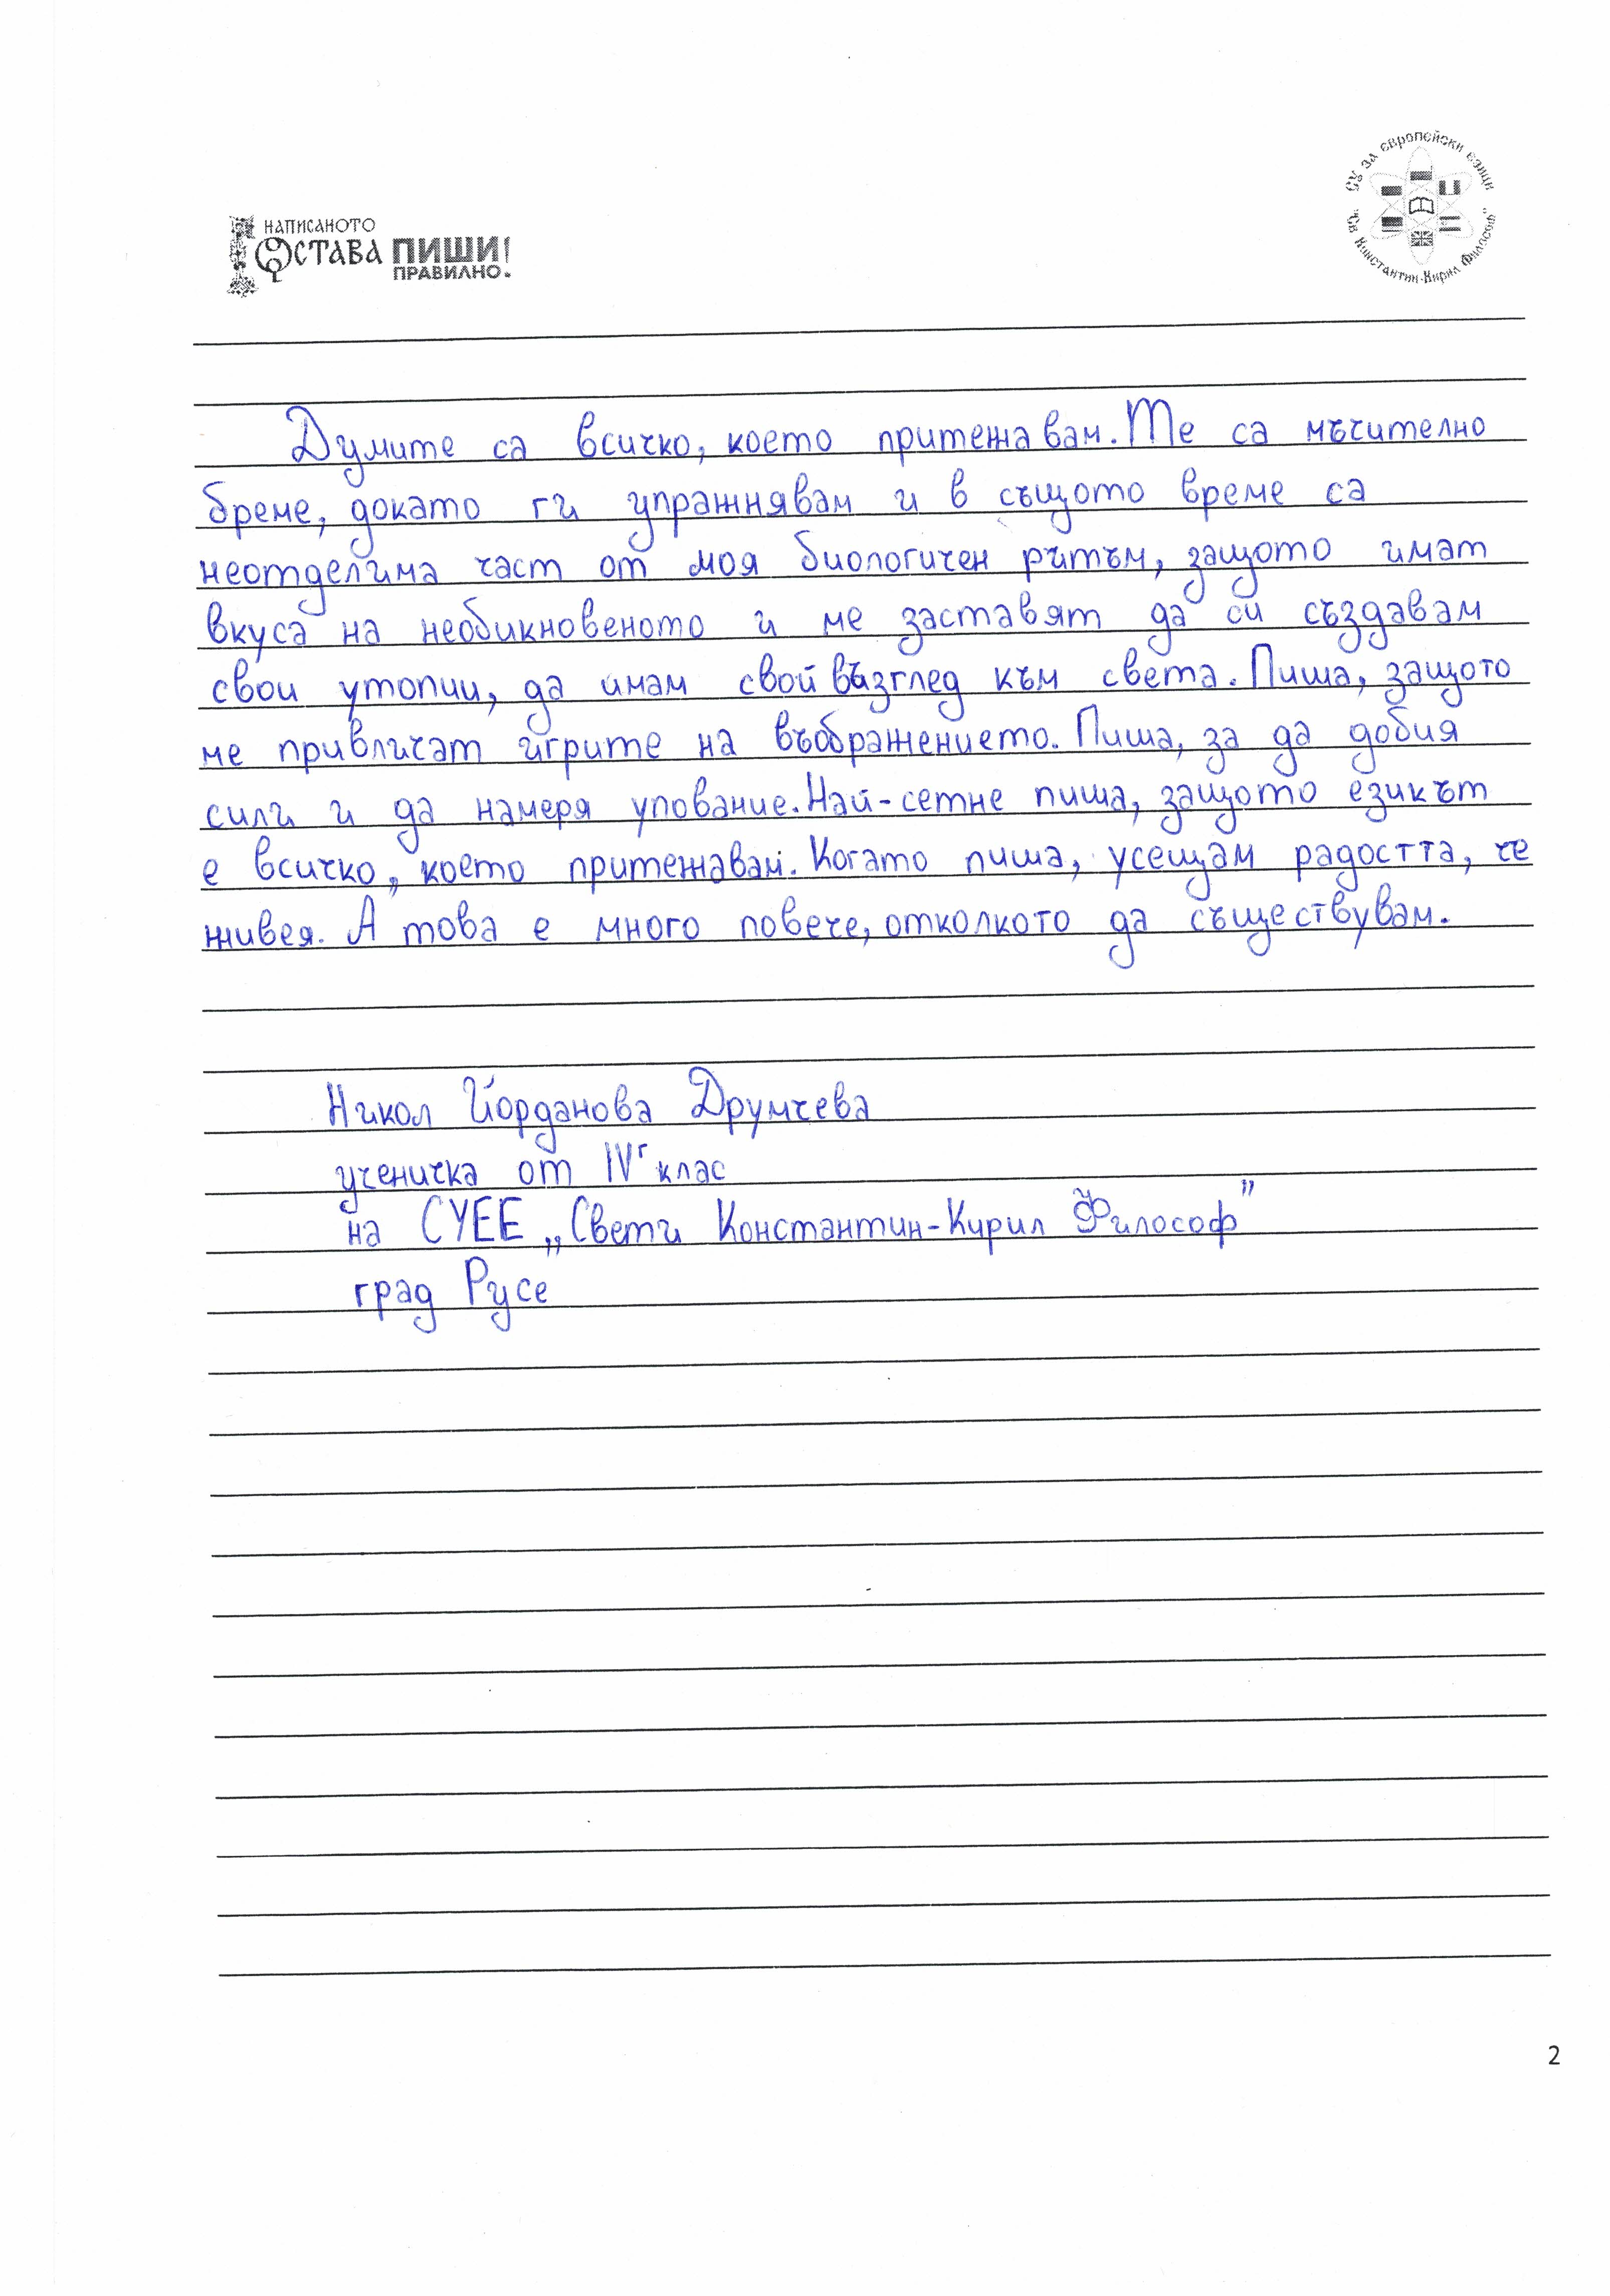 НАПИСАНОТО
ОСТАВА ПИШИ!
ПРАВИЛНО.
СУ за европейски езици
"Св. Константин-Кирил Философ"
Думите са всичко, което притежавам. Те са мъчително
бреме, докато ги упражнявам и в същото време са
неотделима част от моя биологичен ритъм, защото имат
вкуса на необикновеното и ме заставят да си създавам
свои утопии, да имам свой възглед към света. Пиша, защото
ме привличат игрите на въображението. Пиша, за да добия
сили и да намеря упование. Най-сетне пиша, защото езикът
е всичко, което притежавам. Когато пиша, усещам радостта, че
живея. А това е много повече, отколкото да съществувам.
Никол Йорданова Друмчева
ученичка от IVг клас
на СУЕЕ „Свети Константин-Кирил Философ”
град Русе
2